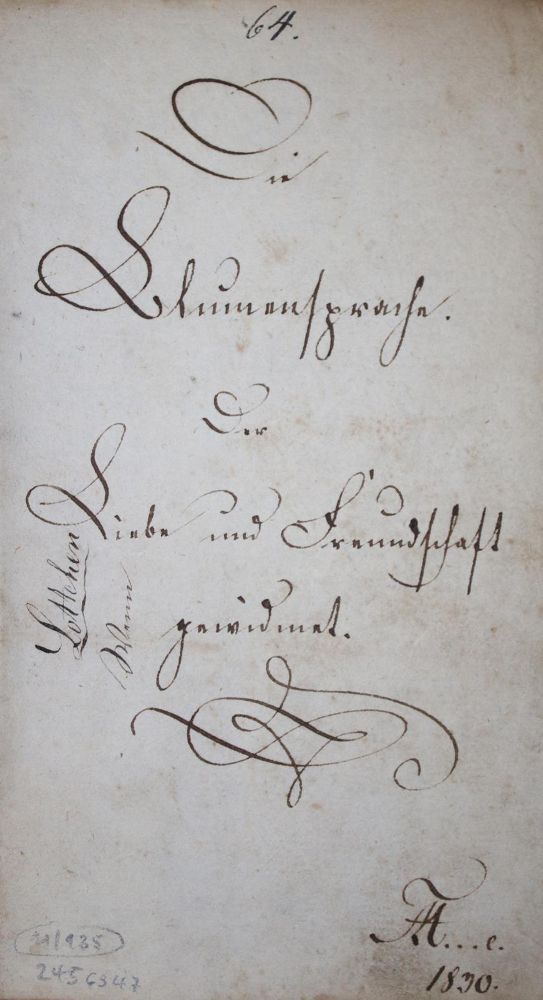 64.
Die
Blumensprache.
Der
Liebe und Freundschaft
gewidmet.
Lottchen
Wenn
1830.
2456347